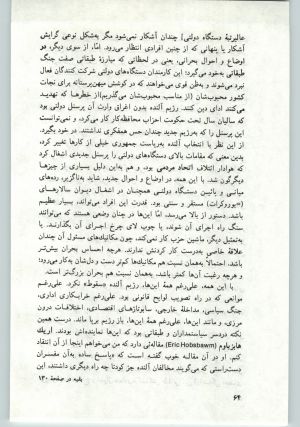 عالیرتبهٔ دستگاه دولتی] چندان آشکار نمی‌شود مگر به‌شکل نوعی گرایش
آشکار یا پنهانی که از چنین افرادی انتظار می‌رود. امّا، از سوی دیگر، دو
اوضاع و احوال بحرانی، یعنی در لحظاتی که مبارزهٔ طبقاتی صفت جنگ
طبقاتی به‌خود می‌گیرد؛ این کارمندان دستگاه‌های دولتی شرکت کنندگان فعال
نبرد می‌شوند و به‌طن اقوی می‌خواهند که در کوشش میهن‌پرستانه برای نجات
کشور محبوب‌شان (از مناصب محبوب‌شان می‌گذریم) از خطرها که تهدید
می‌کنند ادای دین کنند. رژیم آلنده بدون اغراق وارث آن پرسنل دولتی بود
که سالیان سال تحت حکومت احزاب محافظه‌کار کار می‌کرد، و نمی‌توانست
این پرسنل را که به‌رژیم جدید چندان حس همفکری نداشتند. در خود بگیرد.
از این نظر با انتخاب آلنده به‌ریاست جمهوری خیلی از کارها تغییر کرد،
بدین معنی که مقامات بالای دستگاه‌های دولتی را پرسنل جدیدی اشغال کرد
که هوادار ائتلاف اتحاد مردمی بود. و هم به‌این دلیل بسیاری از چیزها
دیگرگون شد. با این همه، در اوضاع و احوال جدید، شاید به‌ناگزیر، رده‌های
میانی و پائین دستگاه دولتی همچنان در اشغال دیوان سالارهای
(=بوروکرات) مستقر و سنتی بود. قدرت این افراد می‌تواند، بسیار عظیم
باشد. دستور از بالا می‌رسد، امّا این‌ها در چنان وضعی هستند که می‌توانند
سنگ راه اجرای آن شوند، یا چوب لای چرخ اجرای آن بگذارند. یا
به‌تمثیل دیگر، ماشین حزب کار نمی‌کند، چون مکانیک‌های مسئول آن چندان
علاقهٔ خاصی به‌درست کار کردنش ندارند. هرچه احساس بحران بیش‌تر
باشد، احتمالاً به‌همان نسبت هم مکانیک‌ها کم‌تر دست و دلشان به‌کار می‌رود؛
و هرچه رغبت آن‌ها کم‌تر باشد، به‌همان نسبت هم بحران بزرگ‌تر است.
با این همه، علی‌رغم همهٔ این‌ها، رژیم آلنده «سقوط» نکرد. علی‌رغم
موانعی که در راه تصویب لوایح قانونی بود. علی‌رغم خرابکاری اداری،
جنگ سیاسی، مداخلهٔ خارجی، سابوتاژهای اقتصادی، اختلافات درون
مرزی، و مانند این‌ها، علی‌رغم همهٔ این‌ها، باز رژیم برپا ماند. درست همین
نکته دردسر سیاستمداران و طبقاتی بود که این‌ها نماینده‌اش بودند. اریك
هابزباوم (Eric Hobsbawm) مقاله‌ئی دارد که من می‌خواهم اینجا از آن انتقاد
کنم. او در آن مقاله خوب گفته است که «پاسخ ساده به‌آن مفسران
دست‌راستی که می‌گویند مخالفان آلنده جز کودتا چه راه دیگری داشتند، این
بقیه در صفحهٔ ۱۳۰
۶۴